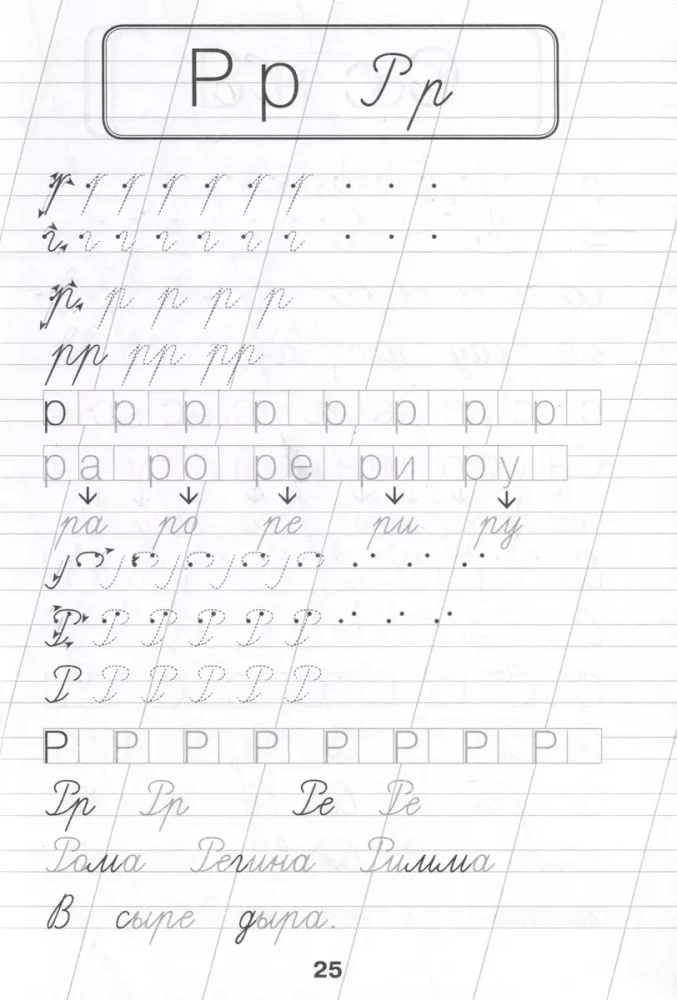 Рр Рр
р р р р р
рр рр рр
р р р р р р р р
ра ро ре ри ру
ра ро ре ри ру
Р Р Р Р Р Р
Р Р Р Р Р Р
Р Р Р Р Р Р Р Р
Рр Рр Ре Ре
Рома Регина Римма
В сыре дыра.
25